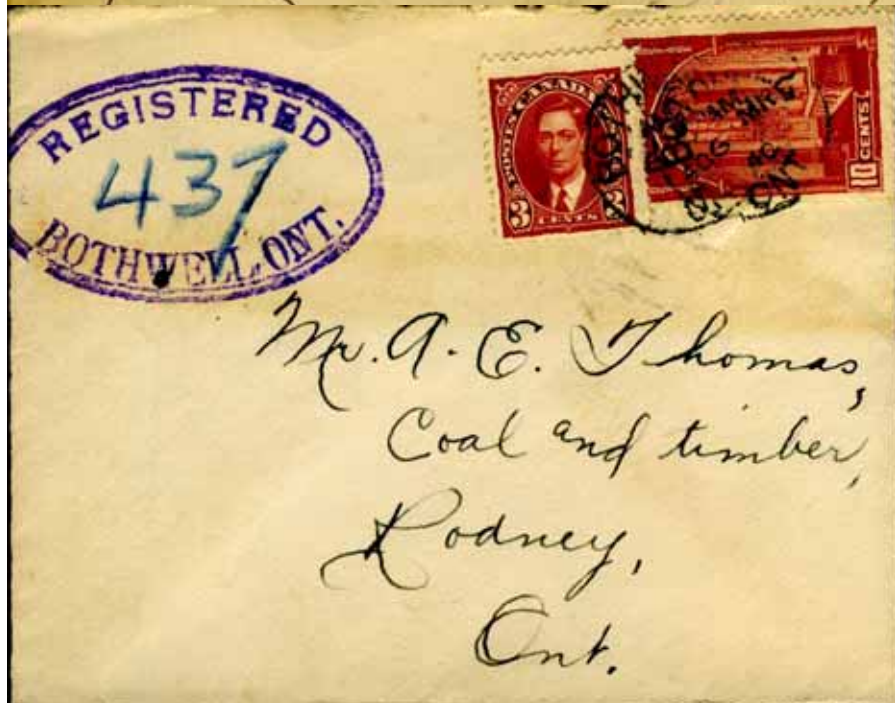 REGISTERED
437
BOTHWELL, ONT.
POSTES CANADA
3 CENTS 3
10 CENTS
AM
40
ONT
Mr. A. E. Thomas,
Coal and timber,
Rodney,
Ont.